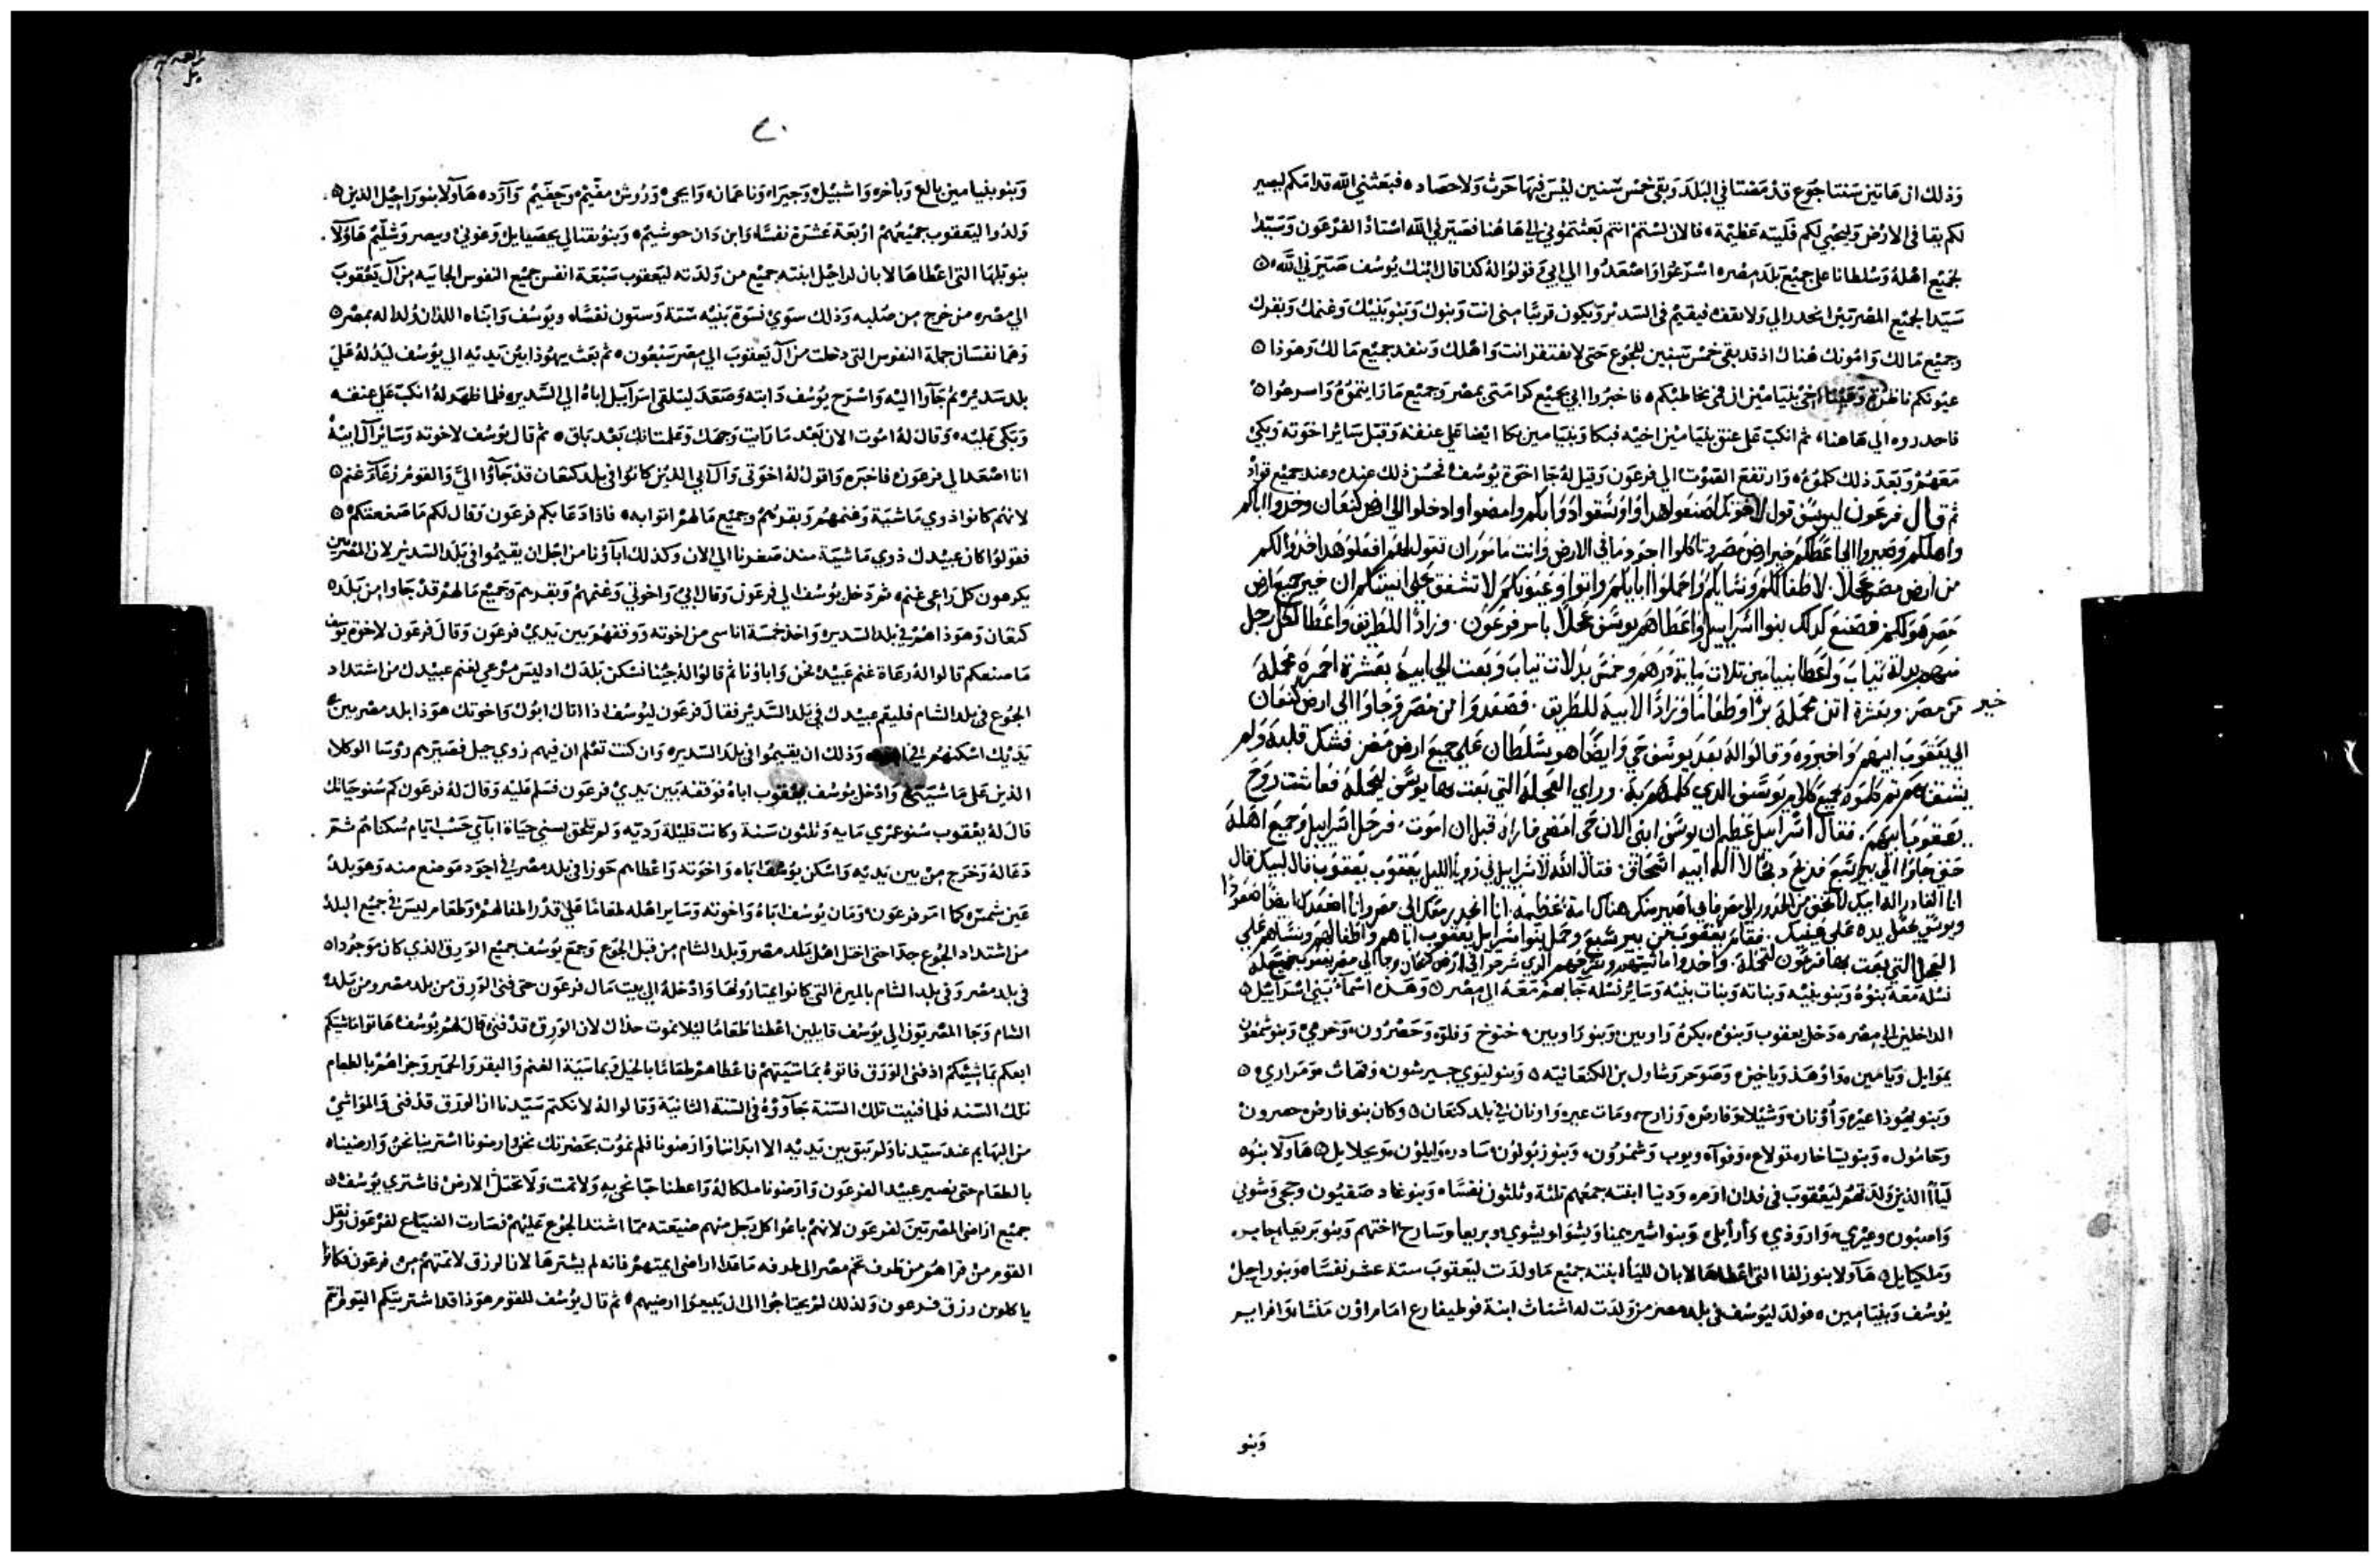 وذلك ان هاتين سنتا جوع قد مضتا في البلد وبقي خمس سنين ليس فيها حرث ولا حصاد فبعثني الله قدامكم ليصير
لكم بقا في الارض وليحيي لكم فليته عظيمة فالان لستم انتم بعثتموني الي هاهنا فصيرني الله استاذ الفرعون وسيدا
لجميع اهله وسلطانا علي جميع بلد مصر اسرعوا واصعدوا الي ابي وقولوا له كذا قال ابنك يوسف صيرني الله
سيدا لجميع المصريين انحدر الي ولا تقف فيقيم في السدير ويكون قريبا مني انت وبنوك وبنو بنيك وغنمك وبقرك
وجميع مالك وامونك هناك اذ قد بقي خمس سنين للجوع حتي لا تفتقر انت واهلك وينفد جميع مالك وهوذا
عيونكم ناظرة وعينا اخي بنيامين ان في مخاطبكم فاخبروا ابي بجميع كرامتي بمصر وجميع ما رايتموه واسرعوا
فاحدروه الي هاهنا ثم انكب علي عنق بنيامين اخيه فبكا وبنيامين بكا ايضا علي عنقه وقبل ساير اخوته وبكي
معهم وبعد ذلك كلموه وارتفع الصوت الي فرعون وقيل له جا اخوة يوسف فحسن ذلك عنده وعند جميع قواد
ثم قال فرعون ليوسف قول لاخوتك اصنعوا هذا واوسقوا دوابكم وامضوا وادخلوا الي ارض كنعان وخذوا اباكم
واهلكم وصيروا الي اعطكم خير ارض مصر وتاكلوا اجود ما في الارض وانت مامور ان تقول لهم افعلوا هذا خذوا لكم
من ارض مصر عجلا لاطفالكم ونسايكم واحملوا اباكم واتوا وعيونكم لا تشفق علي انيتكم ان خير جميع ارض
مصر هو لكم فصنع كذلك بنوا اسراييل واعطاهم يوسف عجلا بامر فرعون وزادا للطريق واعطا لكل رجل
منهم بدلة تياب واعطا بنيامين تلات ماية درهم وخمس بدلات تياب وبعت الي ابيه بعشرة احمرة محملة
خير
من مصر وبعشرة اتن محملة برا وطعاما وزادا لابيه للطريق فصعدوا من مصر وجاوا الي ارض كنعان
الي يعقوب ابيهم واخبروه وقالوا له بعد يوسف حي وايضا هو سلطان علي جميع ارض مصر فشك قلبه ولم
يصدقهم ثم كلموه بجميع كلام يوسف الذي كلمهم به وراي العجلة التي بعت بها يوسف ليحمله فعاشت روح
يعقوب ابيهم فقال اسراييل عظيم ان يوسف ابني الان حي امضي فاراه قبل ان اموت فرحل اسراييل وجميع اهله
حتي جاوا الي بير سبع فذبح دبحا لاله ابيه اسحاق فقال الله لاسراييل في رويا الليل يعقوب يعقوب قال لبيك قال
انا القادر اله ابيك لا تخف من الحدور الي مصر فاني اصير منك هناك امة عظيمة انا انحدر معك الي مصر وانا اصعدك ايضا اصعدا
ويوسف يجعل يده علي عينيك فقام يعقوب من بير سبع وحمل بنوا اسراييل يعقوب اباهم واطفالهم ونساهم علي
العجل التي بعت بها فرعون لتحمله واخدوا ماشيتهم وسرحهم الذي سرحوا في ارض كنعان وجا الي مصر يعقوب وجميع نسله
نسله معه بنوه وبنو بنيه وبناته وبنات بنيه وساير نسله جا بهم معه الي مصر وهذه اسما بني اسراييل
الداخلين الي مصر دخل يعقوب وبنوه بكره راوبين وبنو راوبين خنوخ وفلوه وحصرون وخرمي وبنو شمعون
يموايل ويامين واوهد وياخين وصوحر وشاول بن الكنعانيه وبنو ليوي جيرشون وقهات ومراري
وبنو يهوذا عير واونان وشيلا وفارص وزارح ومات عير واونان في بلد كنعان وكان بنو فارص حصرون
وحامول وبنو يساخار تولاع وفواه ويوب وشمرون وبنو زبولون سادر وايلون ويحلايل هاولا بنوه
ليا الذين ولدتهم ليعقوب في فدان ارم ودنيا ابنته جمعهم تلتة وتلتون نفسا وبنو غاد صفيون وحجي وشوني
واصبون وعيري وارودي وارايلي وبنو اشير يمنا ويشوا ويشوي وبريعا وسارح اختهم وبنو بريعا حابر
وملكيايل هاولا بنو زلفا التي اعطاها لابان لليا ابنته جميع ما ولدت ليعقوب ستة عشر نفسا وبنو راحيل
يوسف وبنيامين فولد ليوسف في بلد مصر من ولدت له اسنات ابنة فوطيفارع امام اون منشا وافرايم
وبنو
٢٠
وبنو بنيامين بالع وباخر واشبيل وجيرا وناعمان وايحي وروش مفيم وحفيم وارد هاولا بنو راحيل الذين
ولدوا ليعقوب جميعهم اربعة عشرة نفسا وابن دان حوشيم وبنو نفتالي يحصيايل وغوني ويصر وشليم هاولا
بنو بلها التي اعطاها لابان لراحيل ابنته جميع من ولدته ليعقوب سبعة انفس جميع النفوس الجاييه من ال يعقوب
الي مصر من خرج من صلبه وذلك سوي نسوة بنيه ستة وستون نفسا ويوسف وابناه اللذان ولدا له بمصر
وهما نفسان جملة النفوس التي دخلت من ال يعقوب الي مصر سبعون ثم بعث يهوذا بين يديه الي يوسف ليدله علي
بلد سدير ثم جاوا اليه واسرح يوسف دابته وصعد لتلقي اسراييل اباه الي السدير فلما ظهر له انكب علي عنقه
وبكي عليه وقال له اموت الان بعد ما رايت وجهك وعلمت انك بعد باق ثم قال يوسف لاخوته وساير ال ابيه
انا اصعد الي فرعون فاخبره واقول له اخوتي وال ابي الذين كانوا في بلد كنعان قد جاوا الي والقوم رعاة غنم
لانهم كانوا ذوي ماشية وغنمهم وبقرهم وجميع مالهم اتوا به فاذا دعا بكم فرعون وقال لكم ما صنعتكم
فقولوا كان عبيدك ذوي ماشية منذ صغرنا الي الان وكذلك اباونا من اجل ان يقيموا في بلد السدير لان المصريين
يكرهون كل راعي غنم ثم دخل يوسف الي فرعون وقال ابي واخوتي وغنمهم وبقرهم وجميع مالهم قد جاوا من بلد
كنعان وهوذا هم في بلد السدير واخذ خمسة اناس من اخوته ووقفهم بين يدي فرعون وقال فرعون لاخوة يوسف
ما صنعتكم قالوا له رعاة غنم عبيدك نحن واباونا ثم قالوا له جينا نسكن بلدك اذ ليس مرعي لغنم عبيدك من اشتداد
الجوع في بلد الشام فليقم عبيدك في بلد السدير فقال فرعون ليوسف اذا اتاك ابوك واخوتك هوذا بلد مصر بين
يديك اسكنهم في وذلك ان يقيموا في بلد السدير وان كنت تعلم ان فيهم ذوي حيل فصيرهم روسا الوكلا
الذين علي ماشيتي وادخل يوسف يعقوب اباه فوقفه بين يدي فرعون فسلم عليه وقال له فرعون كم سنو حياتك
قال له يعقوب سنو عمري مايه وثلثون سنة وكانت قليلة رديه ولم تلحق بسني حياة اباي حسب ايام سكناهم ثم
دعا له وخرج من بين يديه واسكن يوسف اباه واخوته واعطاهم حوزا في بلد مصر في اجود موضع منه وهو بلد
عين شمس كما امر فرعون ومان يوسف اباه واخوته وساير اهله طعاما علي قدر اطفالهم وطعام ليس في جميع البلد
من اشتداد الجوع جدا حتي اختل اهل بلد مصر وبلد الشام من قبل الجوع وجمع يوسف جميع الورق الذي كان موجودا
في بلد مصر وفي بلد الشام بالميرة التي كانوا يمتارونها وادخله الي بيت مال فرعون حتي فني الورق من بلد مصر ومن بلد
الشام وجا المصريون الي يوسف قايلين اعطنا طعاما ليلا نموت حذاك لان الورق قد فني قال لهم يوسف هاتوا ماشيتكم
ابعكم بماشيتكم اذ فني الورق فاتوه بماشيتهم فاعطاهم طعاما بالخيل وبماشية الغنم والبقر والحمير وجزاهم بالطعام
تلك السنه فلما فنيت تلك السنة جاووه في السنة الثانية وقالوا له لا نكتم سيدنا ان الورق قد فني والمواشي
من البهايم عند سيدنا ولم يبق بين يديه الا ابداننا وارضونا فلم نموت بحضرتك نحن وارضونا اشترينا نحن وارضيناه
بالطعام حتي نصير عبيد الفرعون وارضونا ملكا له واعطنا حبا نحي به ولا نمت ولا تختل الارض فاشتري يوسف
جميع اراضي المصريين لفرعون لانهم باعوا كل رجل منهم ضيعته مما اشتد الجوع عليهم فصارت الضياع لفرعون ونقل
القوم من قراهم من طرف تخم مصر الي طرفه ما خلا اراضي ايمتهم فانه لم يشترها لان الرزق لايمتهم من فرعون فكانوا
ياكلون رزق فرعون ولذلك لم يحتاجوا الي ان يبيعوا ارضيهم ثم قال يوسف للقوم هوذا قد اشتريتكم اليوم انتم